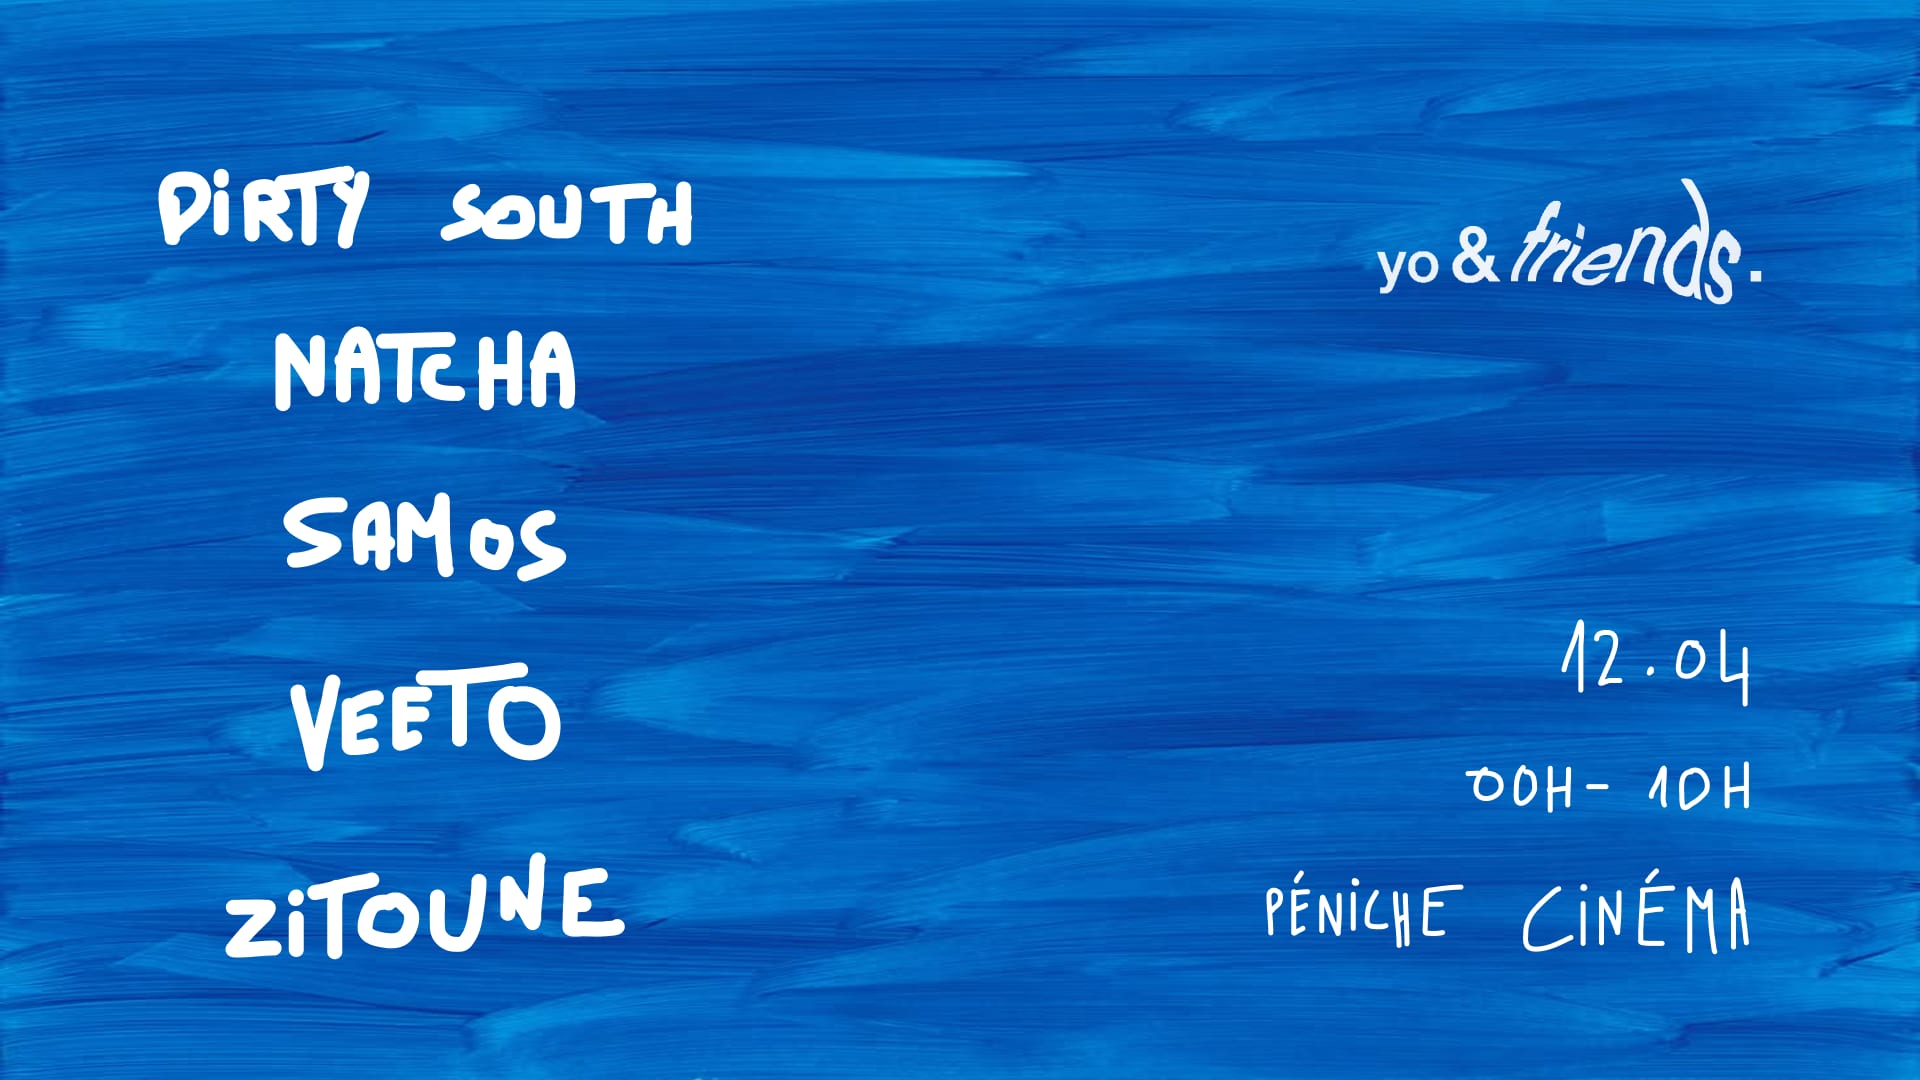 DiRTY SOUTH
NATCHA
SAMOS
VEETO
ZiTOUNE
yo & friends.
12.04
00H - 10H
PÉNiCHE CiNÉMA